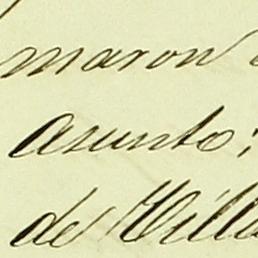 maron
asunto;
de Villa